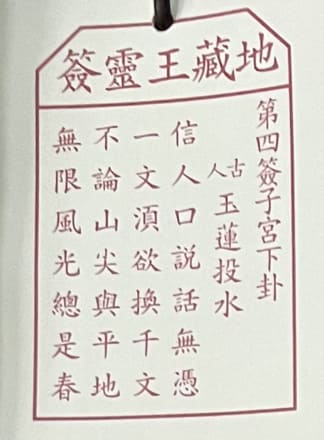 地藏王靈簽
第四簽子宮下卦
古人 玉蓮投水
信人口説話無憑
一文湏欲換千文
不論山尖與平地
無限風光總是春